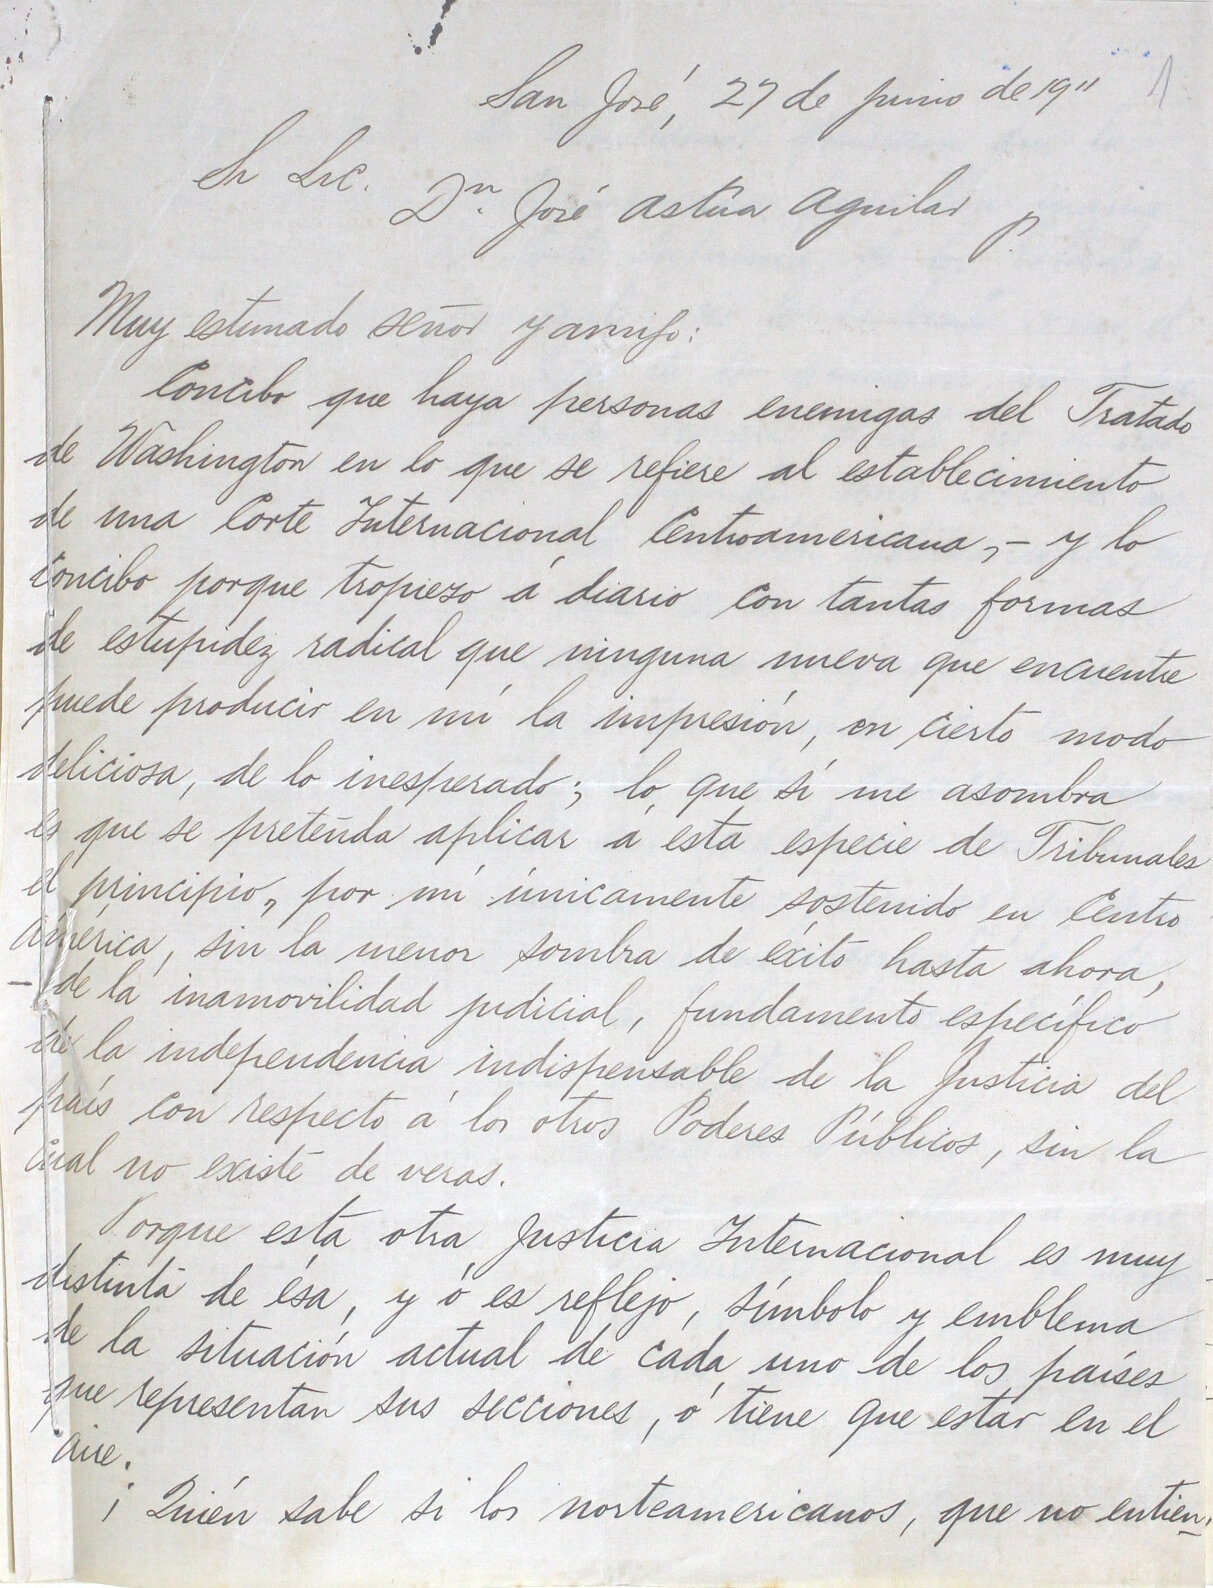 1
San José, 27 de junio de 1911
Sr Lic.
Dn. José Astúa Aguilar
p.
Muy estimado señor y amigo:
Concibo que haya personas enemigas del Tratado
de Washington en lo que se refiere al establecimiento
de una Corte Internacional Centroamericana, – y lo
concibo porque tropiezo á diario con tantas formas
de estupidez radical que ninguna nueva que encuentre
puede producir en mí la impresión, en cierto modo
deliciosa, de lo inesperado; lo que sí me asombra
es que se pretenda aplicar á esta especie de Tribunales
el principio, por mí únicamente sostenido en Centro
América, sin la menor sombra de éxito hasta ahora,
– de la inamovilidad judicial, fundamento específico
de la independencia indispensable de la Justicia del
país con respecto á los otros Poderes Públicos, sin la
cual no existe de veras.
Porque esta otra Justicia Internacional es muy
distinta de ésa, y ó es reflejo, símbolo y emblema
de la situación actual de cada uno de los países
que representan sus secciones, ó tiene que estar en el
aire.
¡Quién sabe si los norteamericanos, que no entien-